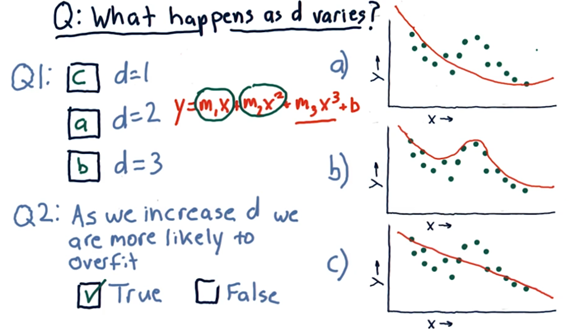 Q: What happens as d varies?
Q1: c d=1
a d=2
b d=3
y=m₁x+m₂x²+m₃x³+b
Q2: As we increase d we
are more likely to
overfit
✓ True False
a)
y→
x→
b)
y→
x→
c)
y→
x→